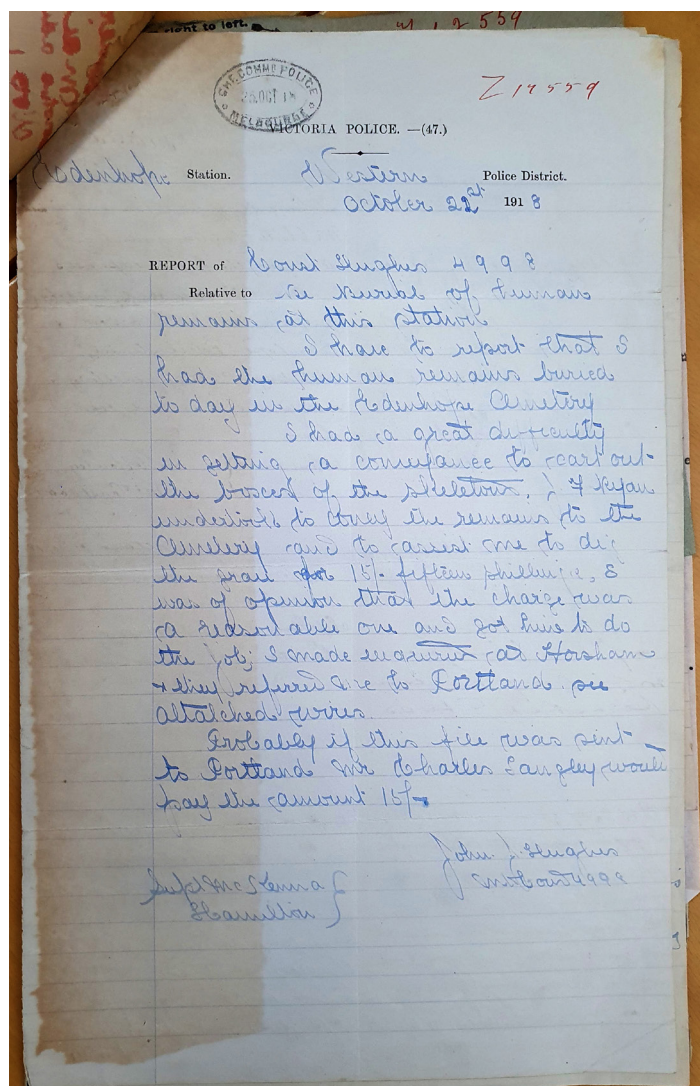 right to left.
Z 17559
CHF. COMMR POLICE
25 OCT 18
MELBOURNE
VICTORIA POLICE.—(47.)
Edenhope Station. Western Police District.
October 22st 1918
REPORT of Const Hughes 4998
Relative to Re Burial of human
remains at this station
I have to report that I
had the human remains buried
to day in the Edenhope Cemetery
I had a great difficulty
in getting a conveyance to cart out
the boxes of the skeletons, J F Ryan
undertook to convey the remains to the
Cemetery and to assist me to dig
the grave for 15/- fifteen shillings, I
was of opinion that the charge was
a reasonable one and got him to do
the job; I made enquires at Horsham
+ they referred me to Portland see
attatched wires.
Probably if this file was sent
to Portland Mr Charles Langley would
pay the amount 15/-
John J Hughes
Const 4998
Supt McKenna
Hamilton